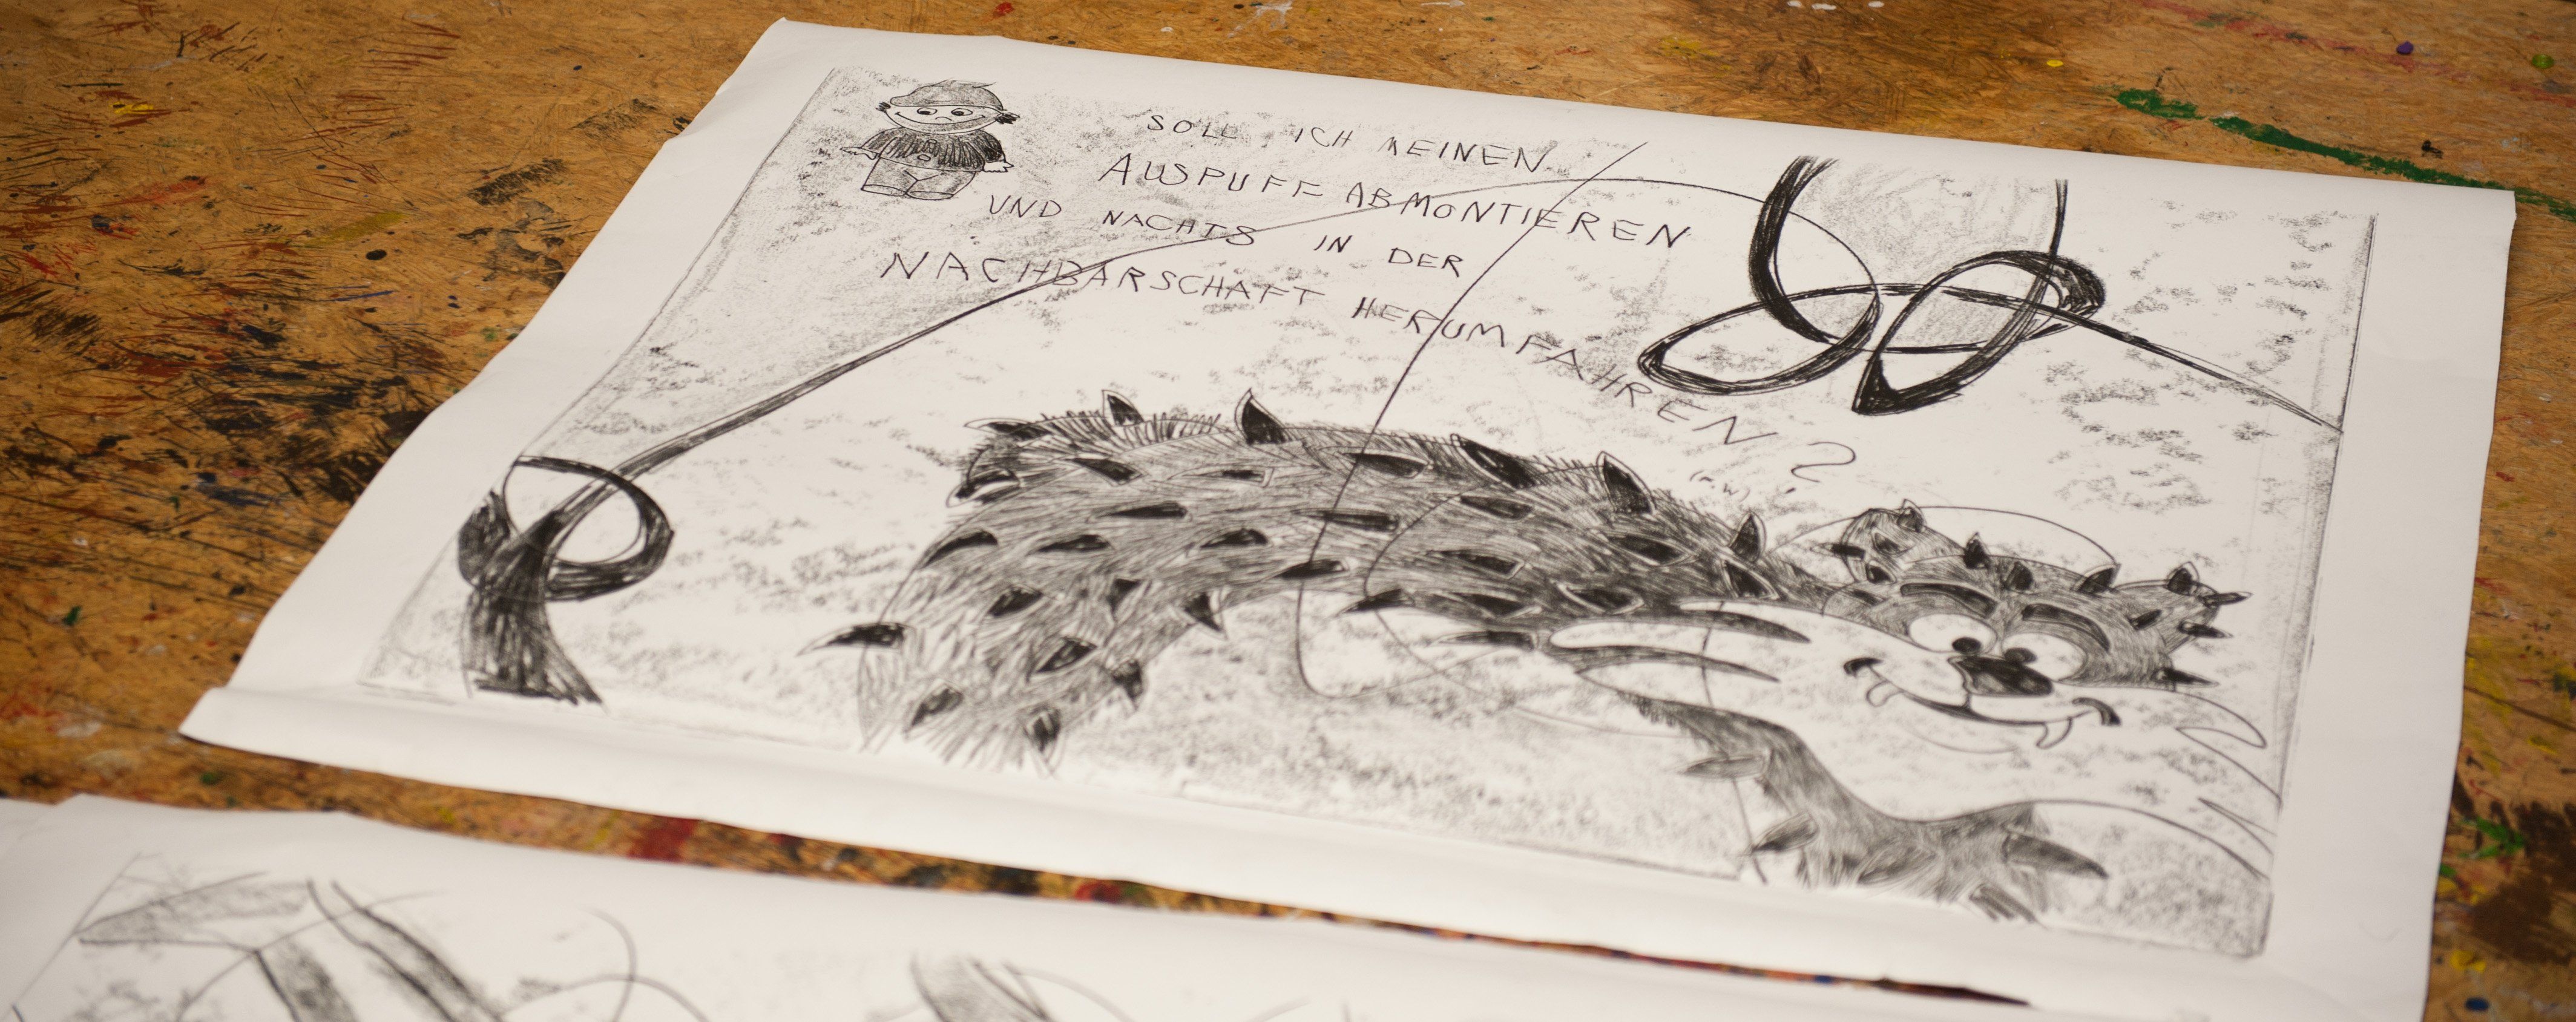 SOLL ICH MEINEN
AUSPUFF ABMONTIEREN
UND NACHTS IN DER
NACHBARSCHAFT HERUMFAHREN?